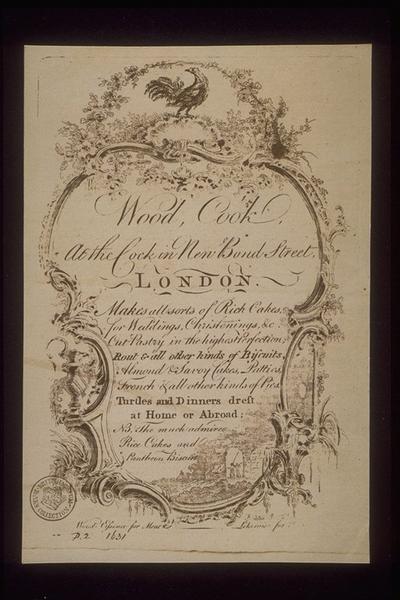 Wood, Cook,
At the Cock in New Bond Street,
LONDON.
Makes all sorts of Rich Cakes,
for Weddings, Christenings, &c.
Cut Pastry in the highest Perfection;
Rout & all other kinds of Biscuits,
Almond & Savoy Cakes, Patties,
French & all other kinds of Pies.
Turtles and Dinners drest
at Home or Abroad;
NB. The much admired
Rice Cakes and
Pantheon Biscuit
D.2 1631